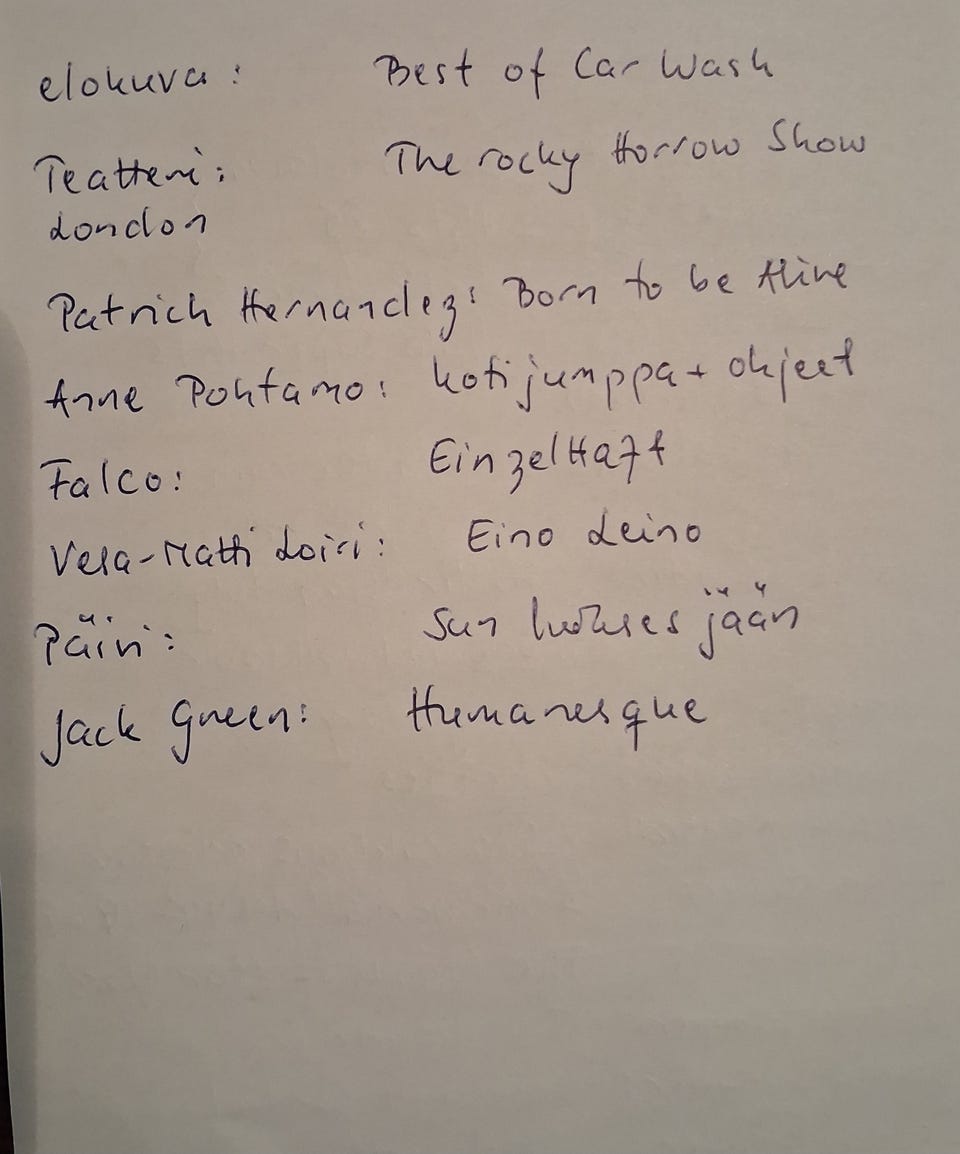 elokuva: Best of Car Wash
Teatteri: The rocky Horrow Show
London
Patrick Hernandez: Born to be Alive
Anne Pohtamo: kotijumppa + ohjeet
Falco: Einzelhaft
Vesa-Matti Loiri: Eino Leino
Päivi: Sun luokses jään
Jack Green: Humanesque